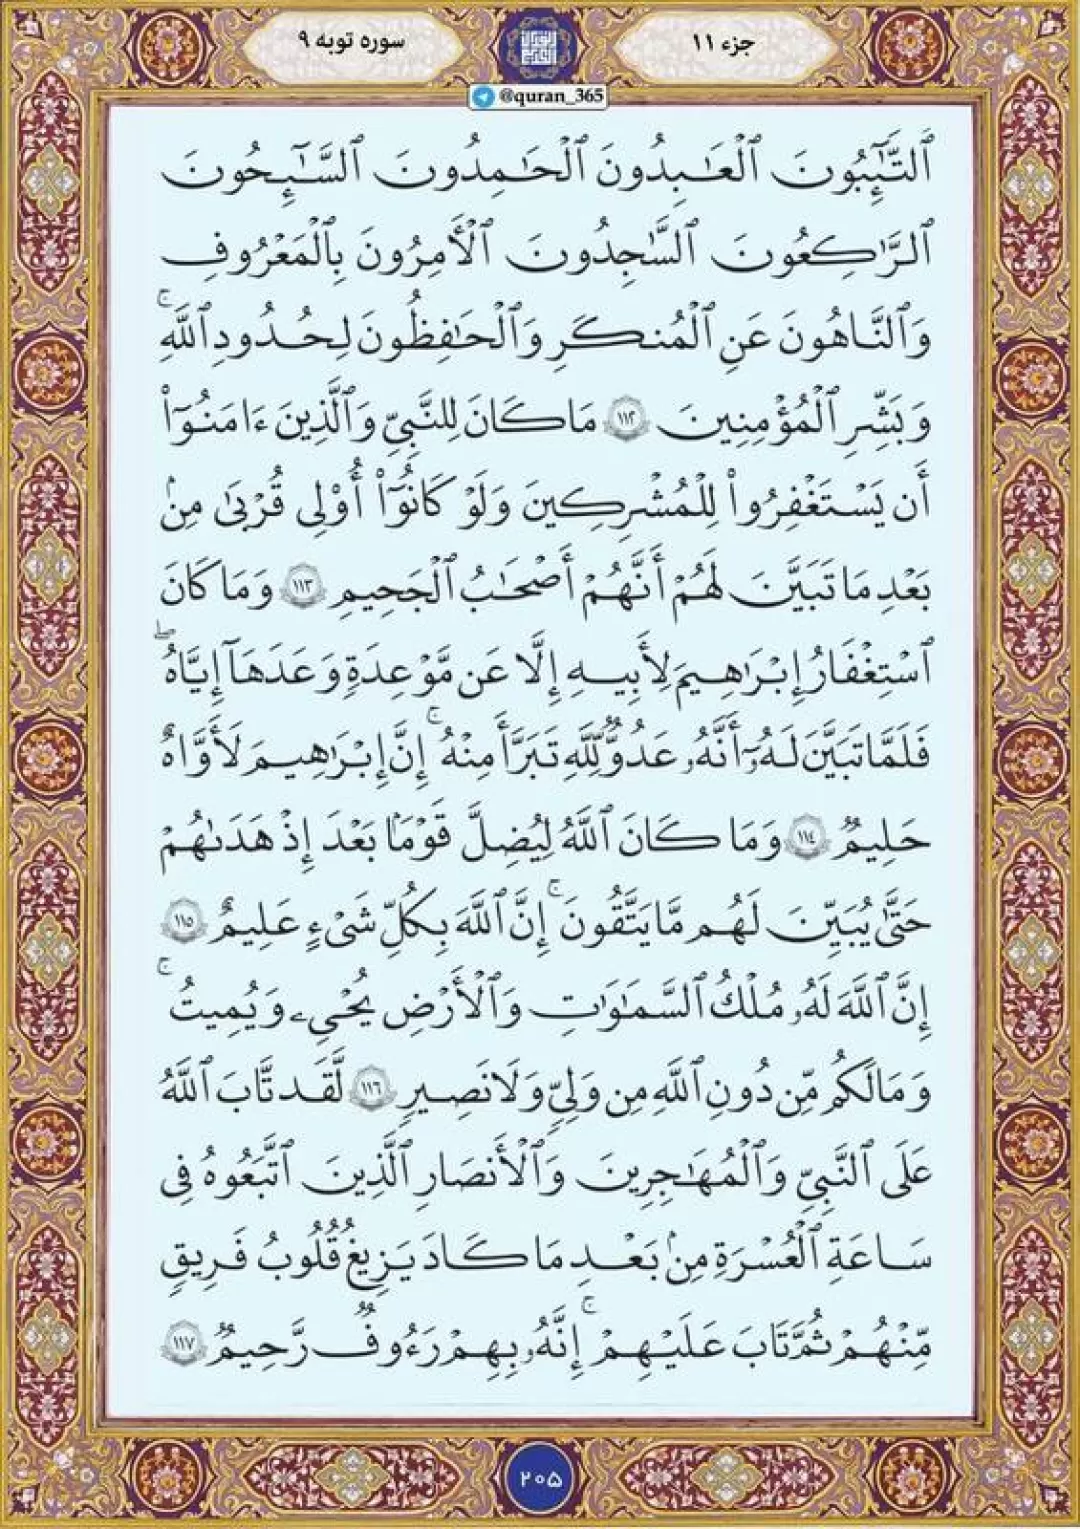 جزء ۱۱
سوره توبه ۹
@quran_365
ٱلتَّـٰٓئِبُونَ ٱلْعَـٰبِدُونَ ٱلْحَـٰمِدُونَ ٱلسَّـٰٓئِحُونَ
ٱلرَّٰكِعُونَ ٱلسَّـٰجِدُونَ ٱلْأَمِرُونَ بِٱلْمَعْرُوفِ
وَٱلنَّاهُونَ عَنِ ٱلْمُنكَرِ وَٱلْحَـٰفِظُونَ لِحُدُودِ ٱللَّهِ ۚ
وَبَشِّرِ ٱلْمُؤْمِنِينَ ١١٢ مَا كَانَ لِلنَّبِيِّ وَٱلَّذِينَ ءَامَنُوٓا۟
أَن يَسْتَغْفِرُوا۟ لِلْمُشْرِكِينَ وَلَوْ كَانُوٓا۟ أُو۟لِى قُرْبَىٰ مِنۢ
بَعْدِ مَا تَبَيَّنَ لَهُمْ أَنَّهُمْ أَصْحَـٰبُ ٱلْجَحِيمِ ١١٣ وَمَا كَانَ
ٱسْتِغْفَارُ إِبْرَٰهِيمَ لِأَبِيهِ إِلَّا عَن مَّوْعِدَةٍ وَعَدَهَآ إِيَّاهُ ۖ
فَلَمَّا تَبَيَّنَ لَهُۥٓ أَنَّهُۥ عَدُوٌّ لِّلَّهِ تَبَرَّأَ مِنْهُ ۚ إِنَّ إِبْرَٰهِيمَ لَأَوَّٰهٌ
حَلِيمٌ ١١٤ وَمَا كَانَ ٱللَّهُ لِيُضِلَّ قَوْمًۢا بَعْدَ إِذْ هَدَىٰهُمْ
حَتَّىٰ يُبَيِّنَ لَهُم مَّا يَتَّقُونَ ۚ إِنَّ ٱللَّهَ بِكُلِّ شَىْءٍ عَلِيمٌ ١١٥
إِنَّ ٱللَّهَ لَهُۥ مُلْكُ ٱلسَّمَـٰوَٰتِ وَٱلْأَرْضِ يُحْىِۦ وَيُمِيتُ ۚ
وَمَا لَكُم مِّن دُونِ ٱللَّهِ مِن وَلِيٍّ وَلَا نَصِيرٍ ١١٦ لَّقَد تَّابَ ٱللَّهُ
عَلَى ٱلنَّبِيِّ وَٱلْمُهَـٰجِرِينَ وَٱلْأَنصَارِ ٱلَّذِينَ ٱتَّبَعُوهُ فِى
سَاعَةِ ٱلْعُسْرَةِ مِنۢ بَعْدِ مَا كَادَ يَزِيغُ قُلُوبُ فَرِيقٍ
مِّنْهُمْ ثُمَّ تَابَ عَلَيْهِمْ ۚ إِنَّهُۥ بِهِمْ رَءُوفٌ رَّحِيمٌ ١١٧
۲۰۵